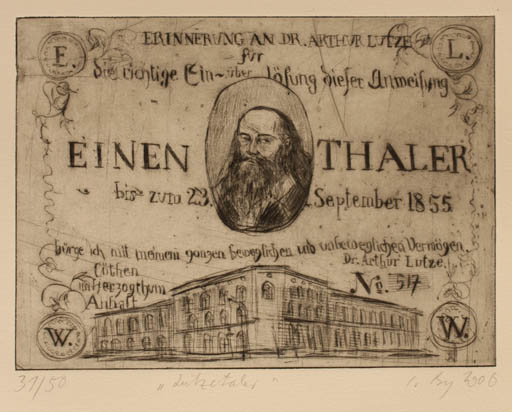 E. L.
ERINNERUNG AN DR. ARTHUR LUTZE
für
die richtige Ein- über lösung dieser Anweisung
EINEN THALER
bis zum 23. September 1855
bürge ich mit meinem ganzen beweglichen und unbeweglichen Vermögen.
Dr. Arthur Lutze.
Cöthen
im Herzogthum
Anhalt
No. 517
W. W.
31/50 "Lutzetaler" 2006